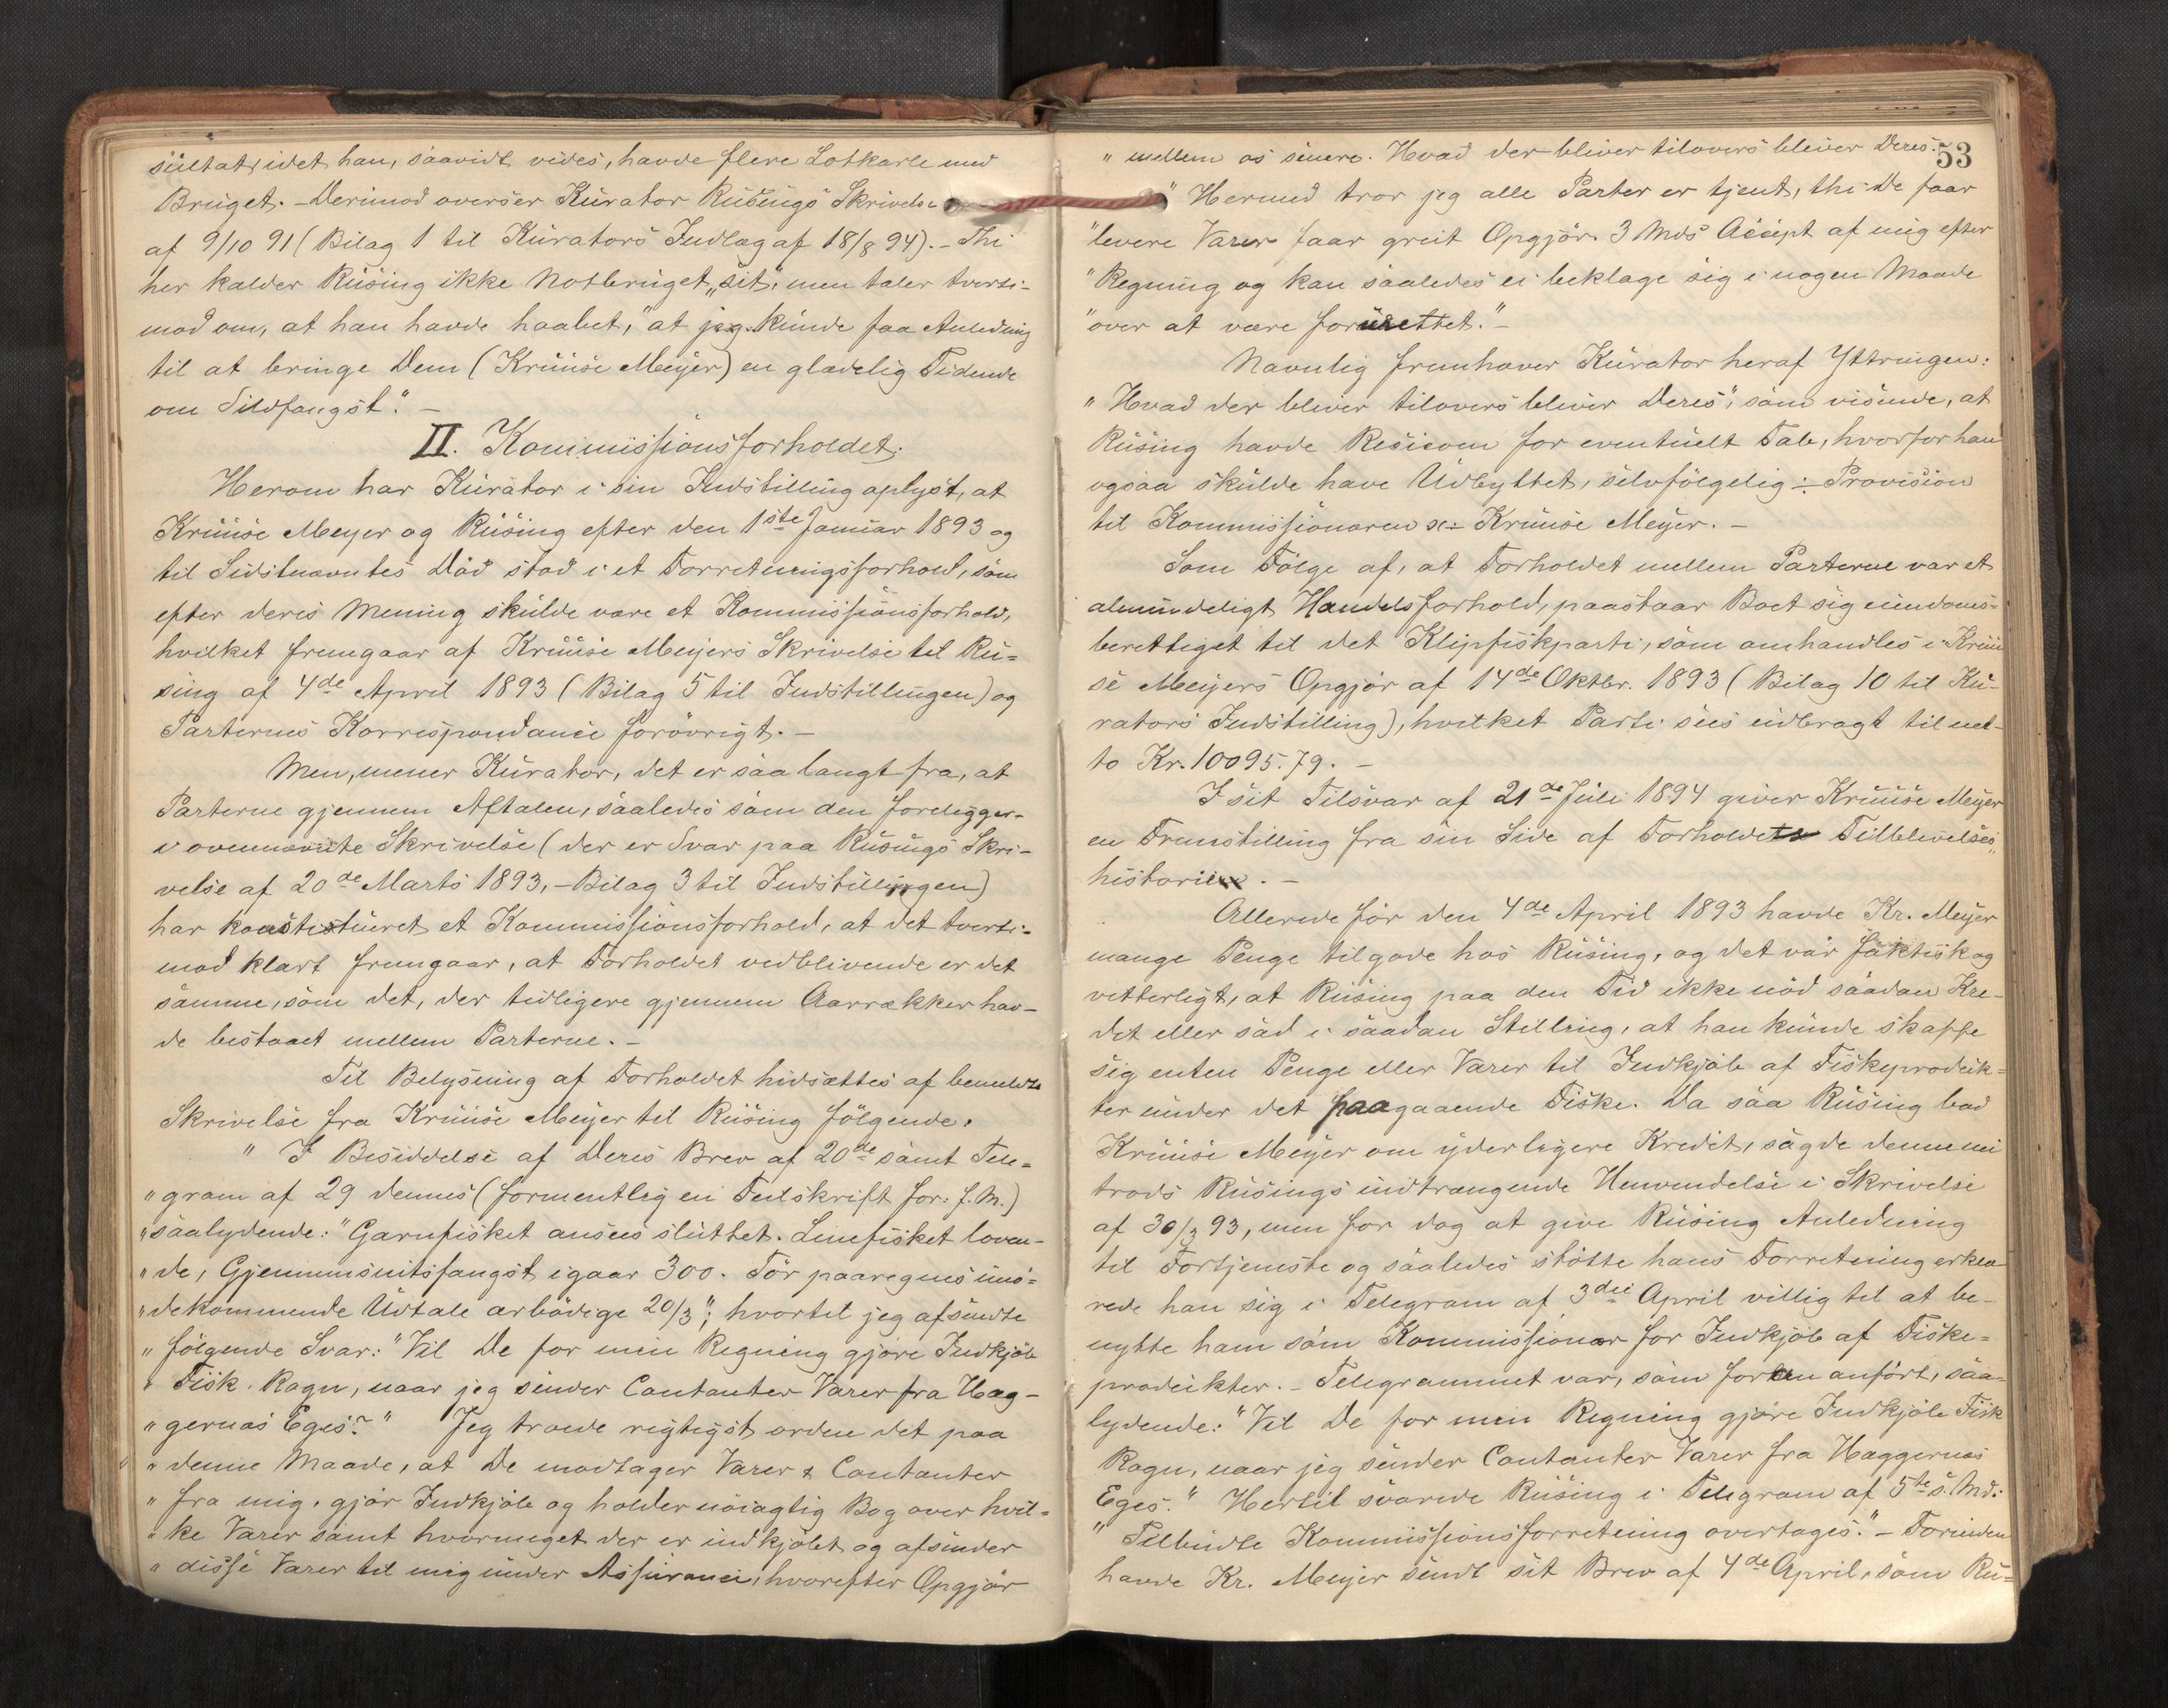 sultat, idet han, saavidt vides, havde flere Lotkarle med
Bruget. – Derimod overser Kurator Rüsings Skrivelse
af 9/10 91 (Bilag 1 til Kurators Indlæg af 18/8 94). – Thi
her kalder Rüsing ikke Notbruget „sit", men taler tverti-
mod om, at han havde haabet, "at jeg kunde faa Anledning
til at bringe Dem (Kruuse Meyer) en glædelig Tidende
om Sildfangst." –
II. Kommissionsforholdet.
Herom har Kurator i sin Indstilling oplyst, at
Kruuse Meyer og Rüsing efter den 1ste Januar 1893 og
til Sidstnævntes Död stod i et Forretningsforhold, som
efter deres Mening skulde være et Kommissionsforhold,
hvilket fremgaar af Kruuse Meyers Skrivelse til Rü-
sing af 4de April 1893 (Bilag 5 til Indstillingen) og
Parternes Korrespondance forövrigt. –
Men, mener Kurator, det er saa langt fra, at
Parterne gjennem Aftalen, saaledes som den foreligger
i ovennævnte Skrivelse (der er Svar paa Rüsings Skri-
velse af 20de Marts 1893, – Bilag 3 til Indstillingen)
har konstitueret et Kommissionsforhold, at det tverti-
mod klart fremgaar, at Forholdet vedblivende er det
samme, som det, der tidligere gjennem Aarrækker hav-
de bestaaet mellem Parterne. –
Til Belysning af Forholdet hidsættes af bemeldte
Skrivelse fra Kruuse Meyer til Rüsing fölgende:
" I Besiddelse af Deres Brev af 20de samt Tele-
" gram af 29 dennes (formentlig en Feilskrift for: f. M.)
" saalydende: "Garnfisket ansees sluttet. Linefisket loven-
" de, Gjennemsnitsfangst igaar 300. Tör paaregnes imö-
" dekommende Udtale ærbödige 20/3"; hvortil jeg afsendte
" fölgende Svar: "Vil De for min Regning gjöre Indkjöb
" Fisk, Rogn, naar jeg sender Contanter Varer fra Hag-
" gernæs Eges?" Jeg troede rigtigst ordne det paa
" denne Maade, at De modtager Varer & Contanter
" fra mig, gjör Indkjöb og holder nöiagtig Bog over hvil-
" ke Varer samt hvormeget der er indkjöbt og afsender
" disse Varer til mig under Assurance, hvorefter Opgjör
53
" mellem os senere. Hvad der bliver tilovers bliver Deres.
" Hermed tror jeg alle Parter er tjent, thi De faar
" levere Varer faar greit Opgjör 3 Mds Accept af mig efter
" Regning og kan saaledes ei beklage sig i nogen Maade
" over at være forurettet." –
Navnlig fremhæver Kurator heraf Yttringen:
" Hvad der bliver tilovers bliver Deres", som visende, at
Rüsing havde Resicoen for eventuelt Tab, hvorfor han
ogsaa skulde have Udbyttet, selvfölgelig ÷ Provision
til Kommissionæren ɔ: Kruuse Meyer. –
Som Fölge af, at Forholdet mellem Parterne var et
almindeligt Handelsforhold, paastaar Boet sig eiendoms-
berettiget til det Klipfiskparti, som omhandles i Kruu
se Meyers Opgjör af 14de Oktbr. 1893 (Bilag 10 til Ku-
rators Indstilling), hvilket Parti sees udbragt til net-
to Kr. 10095.79. –
I sit Tilsvar af 21de Juli 1894 giver Kruuse Meyer
en Fremstilling fra sin Side af Forholdets Tilblivelses-
historie. –
Allerede för den 4de April 1893 havde Kr. Meyer
mange Penge tilgode hos Rüsing, og det var faktisk og
vitterligt, at Rüsing paa den Tid ikke nöd saadan Kre-
dit eller sad i saadan Stilling, at han kunde skaffe
sig enten Penge eller Varer til Indkjöb af Fiskeproduk-
ter under det paagaaende Fiske. Da saa Rüsing bad
Kruuse Meyer om yderligere Kredit, sagde denne nei
trods Rüsings indtrængende Henvendelse i Skrivelse
af 30/3 93, men for dog at give Rüsing Anledning
til Fortjeneste og saaledes stötte hans Forretning erklæ-
rede han sig i Telegram af 3die April villig til at be-
nytte ham som Kommissionær for Indkjöb af Fiske-
produkter. – Telegrammet var, som foran anfört, saa-
lydende: "Vil De for min Regning gjöre Indkjöb Fisk
Rogn, naar jeg sender Contanter Varer fra Haggernæs
Eges." Hertil svarede Rüsing i Telegram af 5te s. Md.:
" Tilbudte Kommissionsforretning overtages." – Forinden
havde Kr. Meyer sendt sit Brev af 4de April, som Rü-